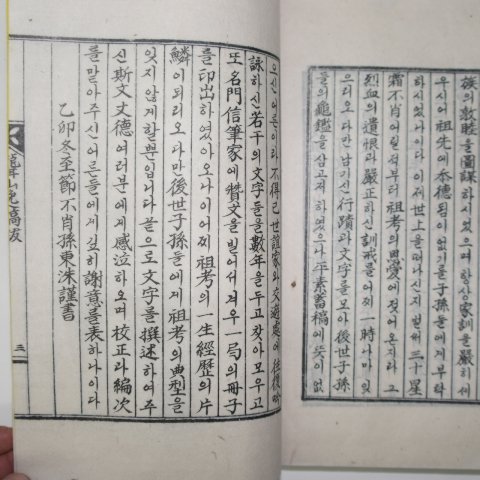 族의 敦睦을 圖謀하시었으며 항상 家訓을 嚴히 세
우시어 祖先에 忝德됨이 없기를 子孫들에게 부탁
하시었나이다 이제 世上을 떠나신지 벌써 三十星
霜不肖 어릴적부터 祖考의 恩愛에 젖어 온지라 그
烈血의 遺恨과 嚴正하신 訓戒를 어찌 一時나마 잊
으리오 다만 남기신 行蹟과 文字를 모아 後世子孫
들의 龜鑑을 삼고저 하였으나 平素蓄稿에 뜻이 없
으신 어른이라 不得已 世誼家와 交遊處에 往復
詠하신 若干의 文字들을 數年을 두고 찾아 모우고
또 名門信筆家에 贊文을 빌어서 겨우 一局의 冊子
를 印出하였아오나 이어찌 祖考의 一生經歷의 片
鱗이되리오 다마 後世子孫들에게 祖考의 典型을
잊지 않게할뿐입니다 끝으로 文字를 撰述하여주
신 斯文文德 여러분에게 感泣하오며 校正과 編次
를 맡아주신 어른들에게 깊히 謝意를 表하나이다
乙卯冬至節 不肖孫東洙謹書
三